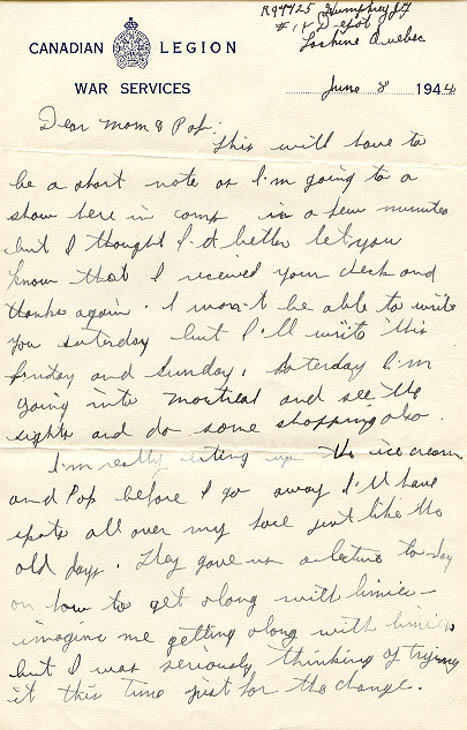 R94425 Humphrey J F
# 1 Y Depot
Lachine Quebec
CANADIAN LEGION
WAR SERVICES
June 8 1944
Dear Mom & Pop:
This will have to
be a short note as I'm going to a
show here in camp in a few minutes
but I thought I'd better let you
know that I received your check and
thanks again. I won't be able to write
you saturday but I'll write this
friday and sunday. Saterday I'm
going into montreal and see the
sights and do some shopping also.
I'm really eating up the ice cream
and Pop before I go away I'll have
spots all over my face just like the
old days. They gave us a lecture to-day
on how to get along with limies -
imagine me getting along with limies
but I was seriously thinking of trying
it this time just for the change.